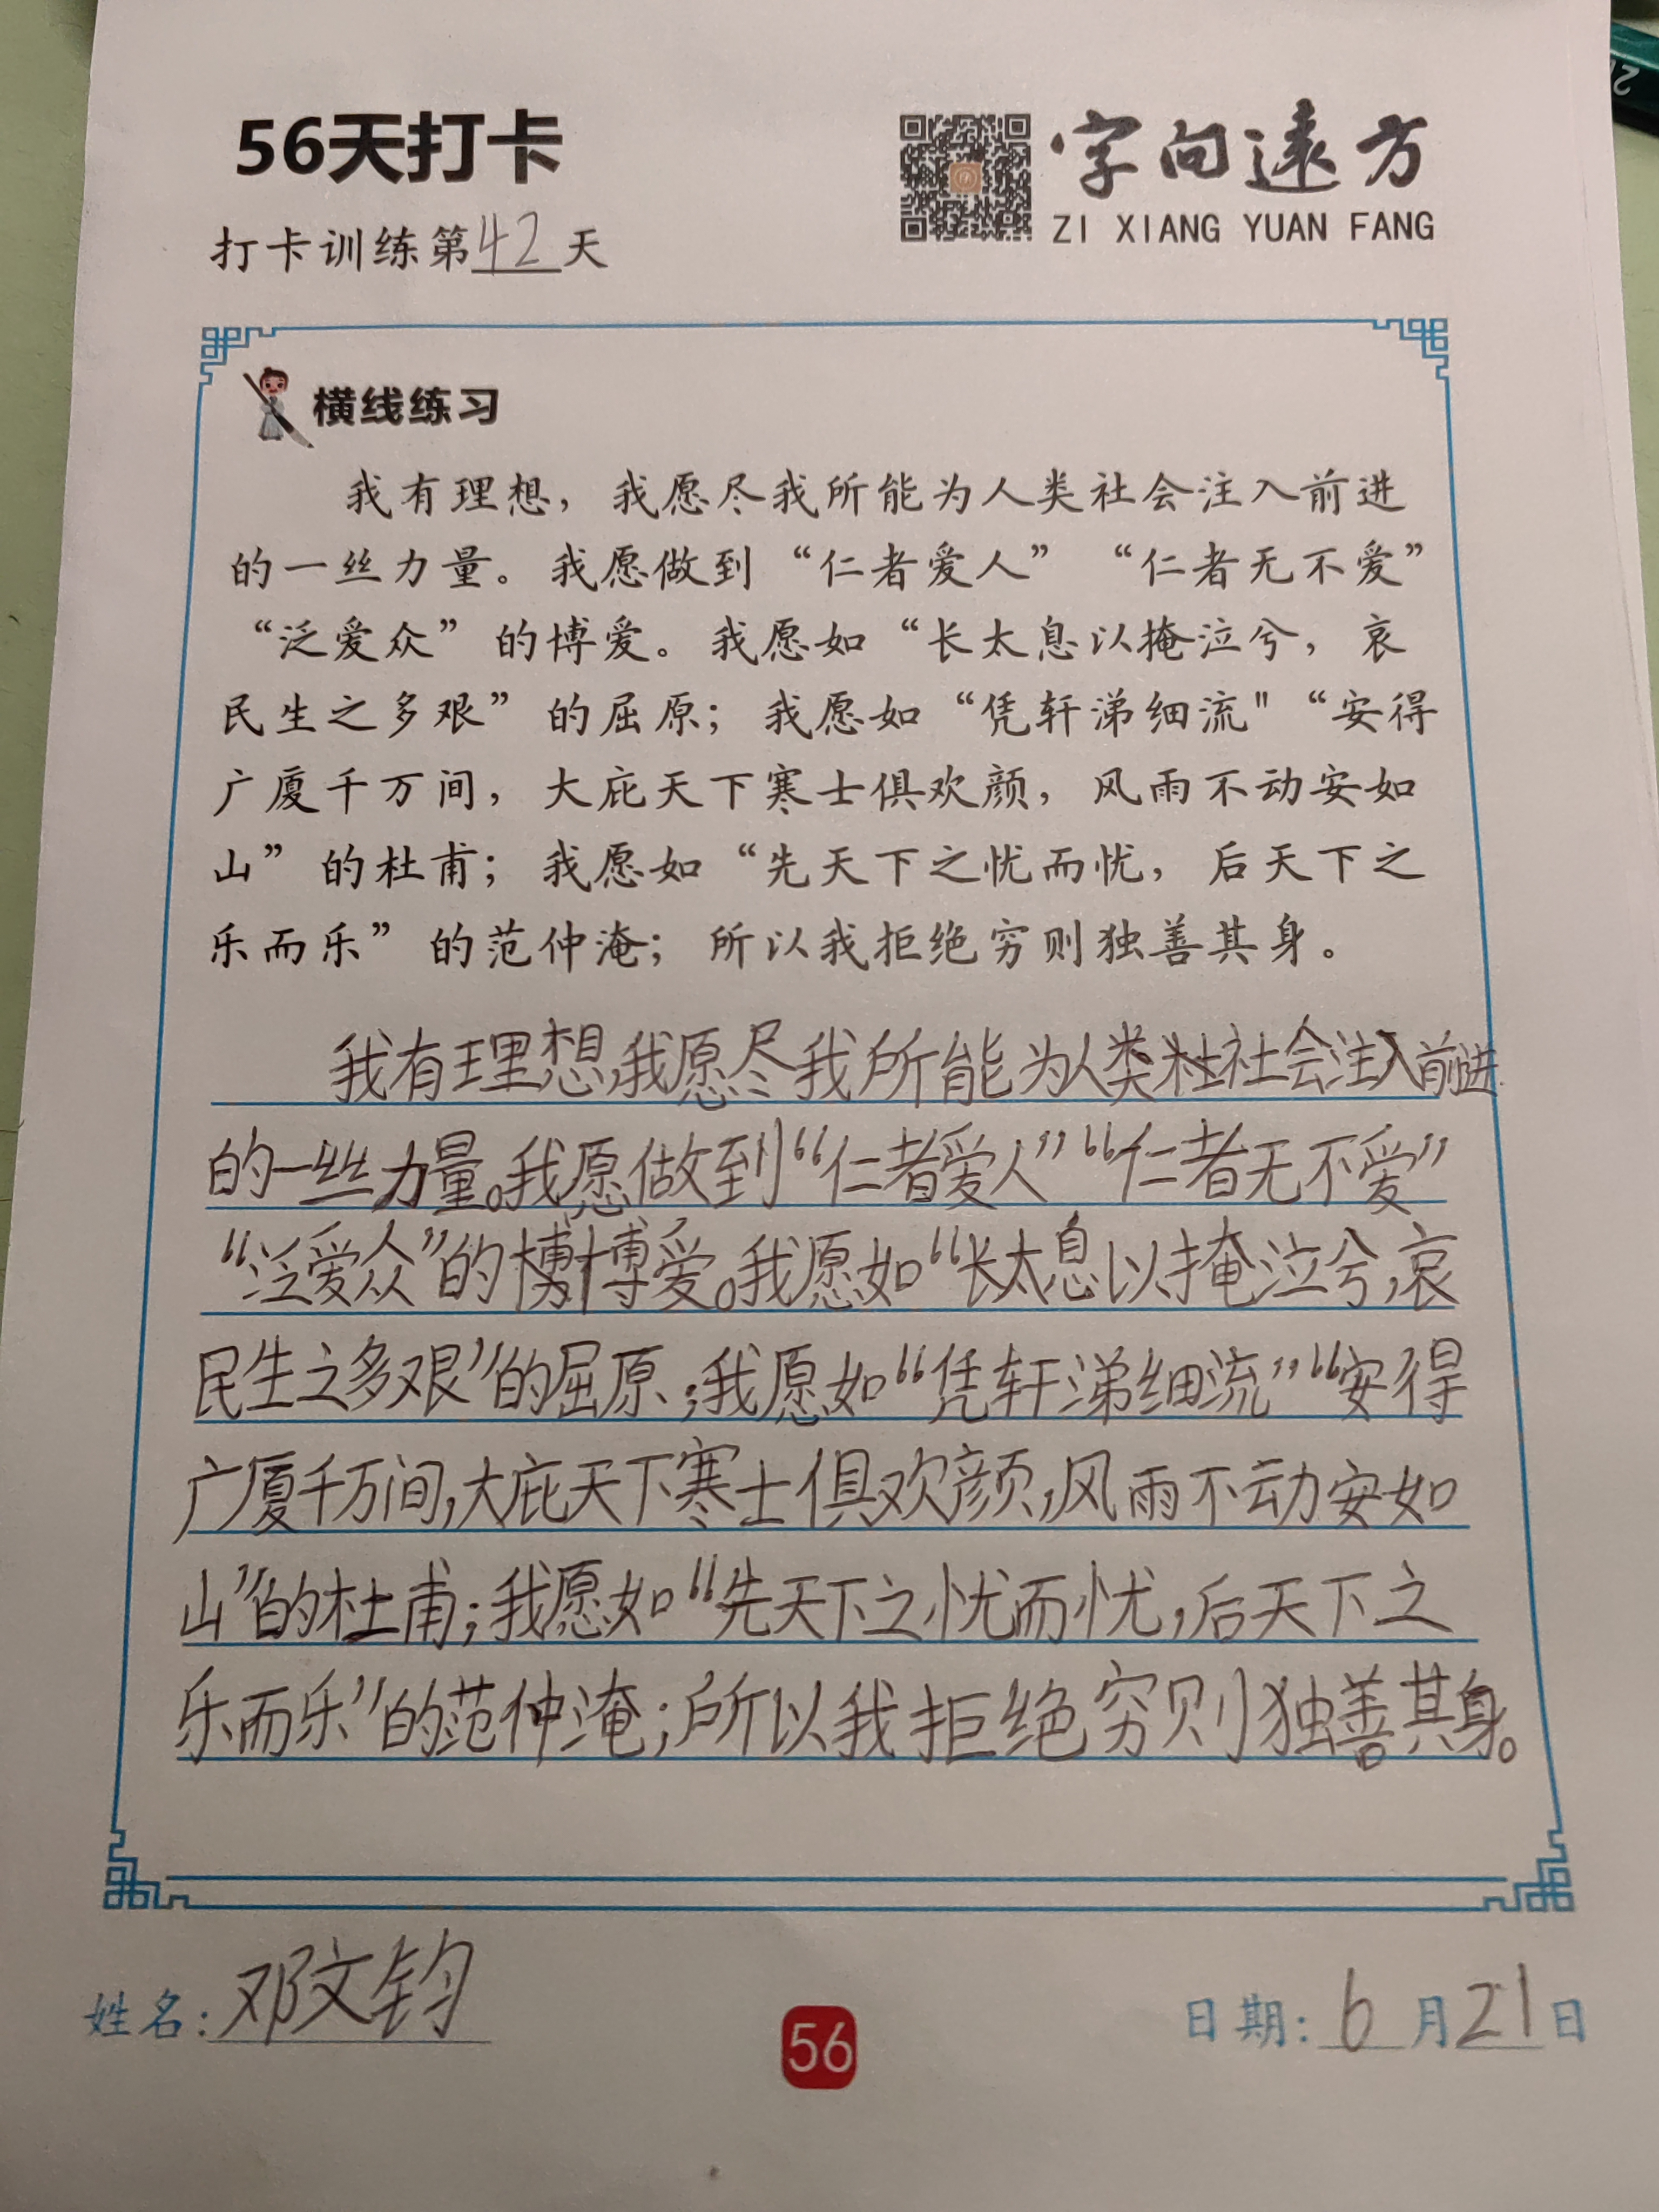 56天打卡
字向遠方
ZI XIANG YUAN FANG
打卡训练第42天
横线练习
我有理想，我愿尽我所能为人类社会注入前进
的一丝力量。我愿做到“仁者爱人”“仁者无不爱”
“泛爱众”的博爱。我愿如“长太息以掩泣兮，哀
民生之多艰”的屈原；我愿如“凭轩涕细流"“安得
广厦千万间，大庇天下寒士俱欢颜，风雨不动安如
山”的杜甫；我愿如“先天下之忧而忧，后天下之
乐而乐”的范仲淹；所以我拒绝穷则独善其身。
我有理想，我愿尽我所能为人类社会注入前进
的一丝力量。我愿做到“仁者爱人”“仁者无不爱”
“泛爱众”的博爱。我愿如“长太息以掩泣兮，哀
民生之多艰”的屈原；我愿如“凭轩涕细流”“安得
广厦千万间，大庇天下寒士俱欢颜，风雨不动安如
山”的杜甫；我愿如“先天下之忧而忧，后天下之
乐而乐”的范仲淹；所以我拒绝穷则独善其身。
姓名：邓文钧
56
日期：6月21日